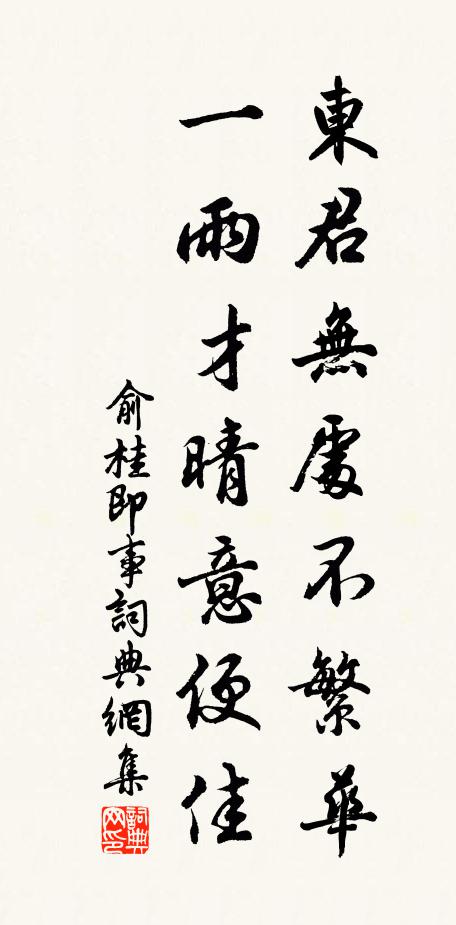 東君無處不繁華
一雨才晴意便佳
俞桂即事詞典網集
詞典网印